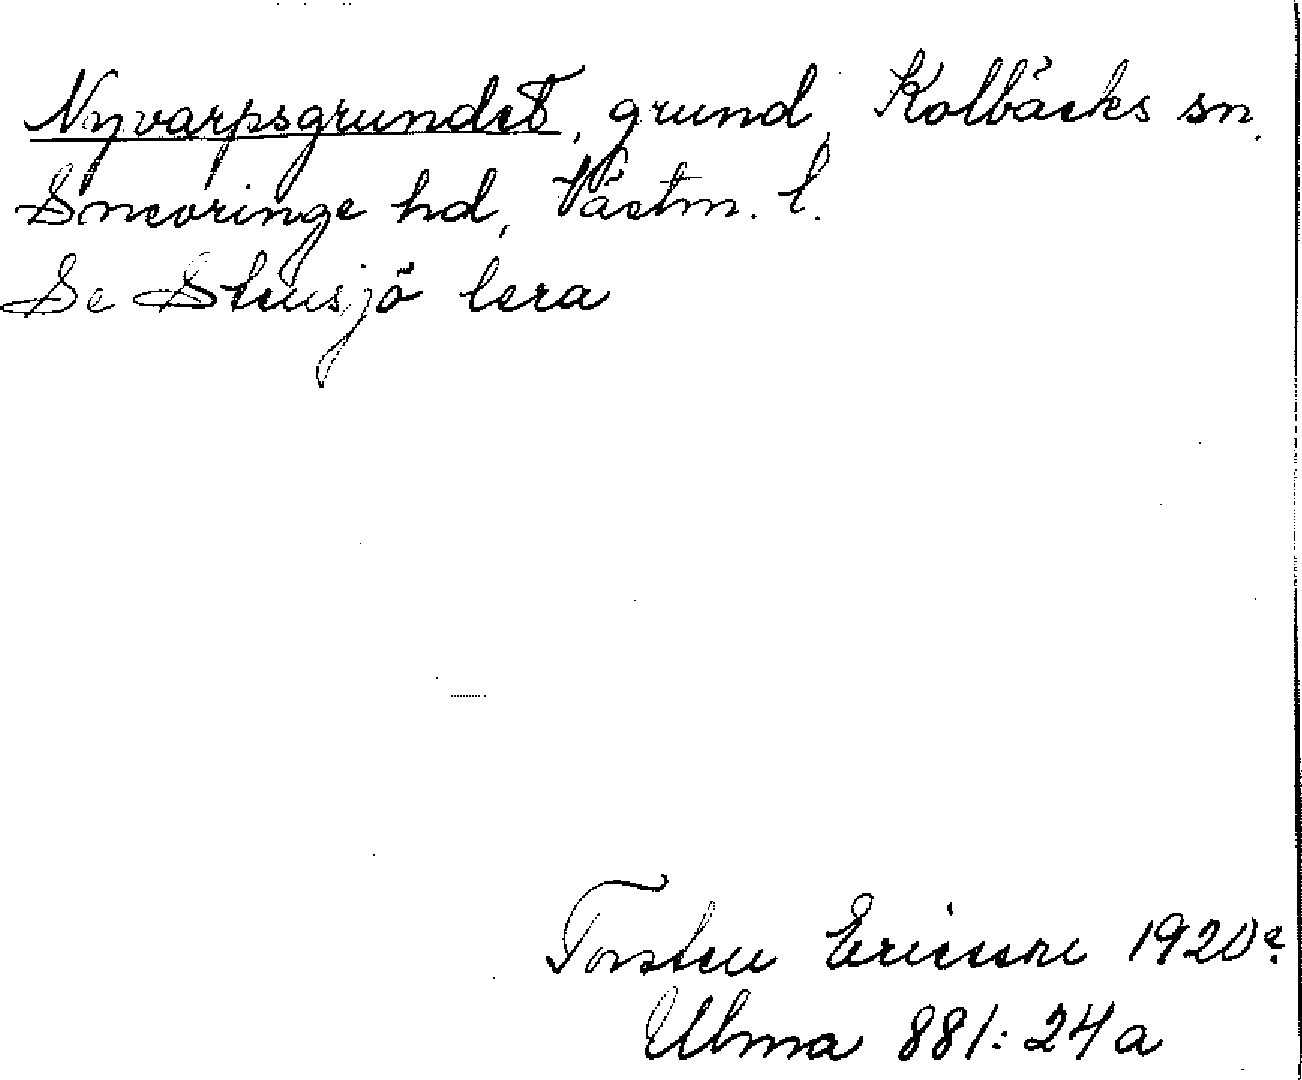 Nyvarpsgrundet, grund, Kolbäcks sn.
Snevringe hd, Västm. l.
Se Stensjö lera
Torsten Ericsson 1920?
Ulma 881:24a